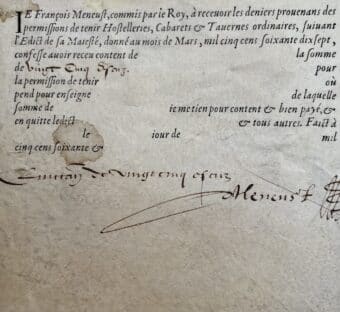 IE François Meneust, commis par le Roy, à receuoir les deniers prouenans des
permissions de tenir Hostelleries, Cabarets & Tauernes ordinaires, suiuant
l'Edict de sa Maiesté, donné au mois de Mars, mil cinq cens soixante dixsept,
confesse auoir receu content de la somme
de vingt cinq escuz pour
la permission de tenir où
pend pour enseigne de laquelle
somme de ie me tien pour content & bien payé, &
en quitte ledict & tous autres. Faict à
le iour de mil
cinq cens soixante &
de vingt cinq escuz
Meneust